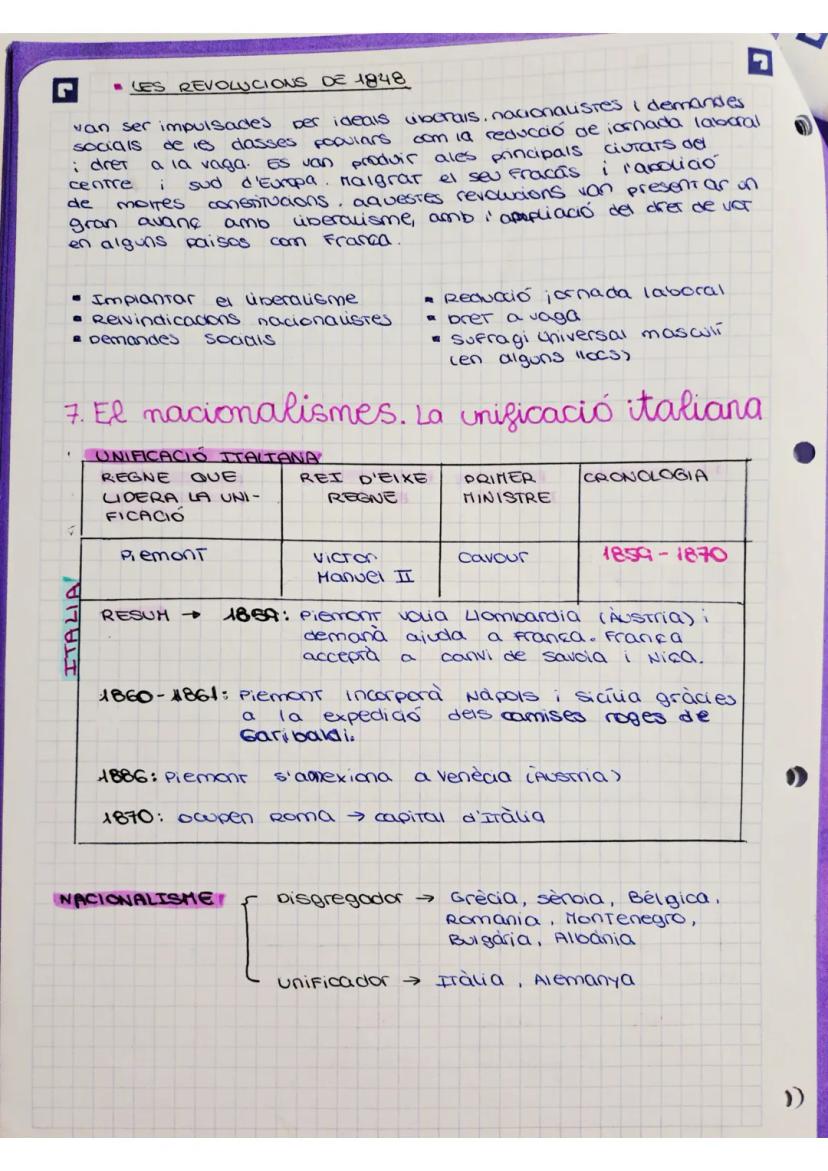 ▪ LES REVOLUCIONS DE 1848
van ser impulsades per ideals liberals, nacionalistes i demandes
socials de les classes populars com la reducció de jornada laboral
i dret a la vaga. Es van produir ales principals ciutats del
centre i sud d'Europa. Malgrat el seu fracàs i l'abolició
de moltes constitucions, aquestes revolucions van presentar un
gran avanç amb liberalisme, amb l'ampliació del dret de vot
en alguns països com França.
▪ Implantar el liberalisme
▪ Reivindicacions nacionalistes
▪ Demandes socials
▪ Reducció jornada laboral
▪ Dret a vaga
▪ Sufragi Universal masculí
(en alguns llocs)
7. El nacionalismes. La unificació italiana
UNIFICACIÓ ITALIANA
REGNE QUE
LIDERA LA UNI-
FICACIÓ
REI D'EIXE
REGNE
PRIMER
MINISTRE
CRONOLOGIA
Piemont
Victor
Manuel II
Cavour
1859 - 1870
ITALIA
RESUM → 1859: Piemont volia Llombardia (Àustria) i
demanà ajuda a França. França
acceptà a canvi de Savoia i Niça.
1860 - 1861: Piemont incorporà Nàpols i Sicília gràcies
a la expedició dels camises roges de
Garibaldi.
1886: Piemont s'annexiona a Venècia (Àustria)
1870: Ocupen Roma → capital d'Itàlia
NACIONALISME
Disgregador → Grècia, Sèrbia, Bélgica,
Romania, Montenegro,
Bulgària, Albània
Unificador → Itàlia, Alemanya